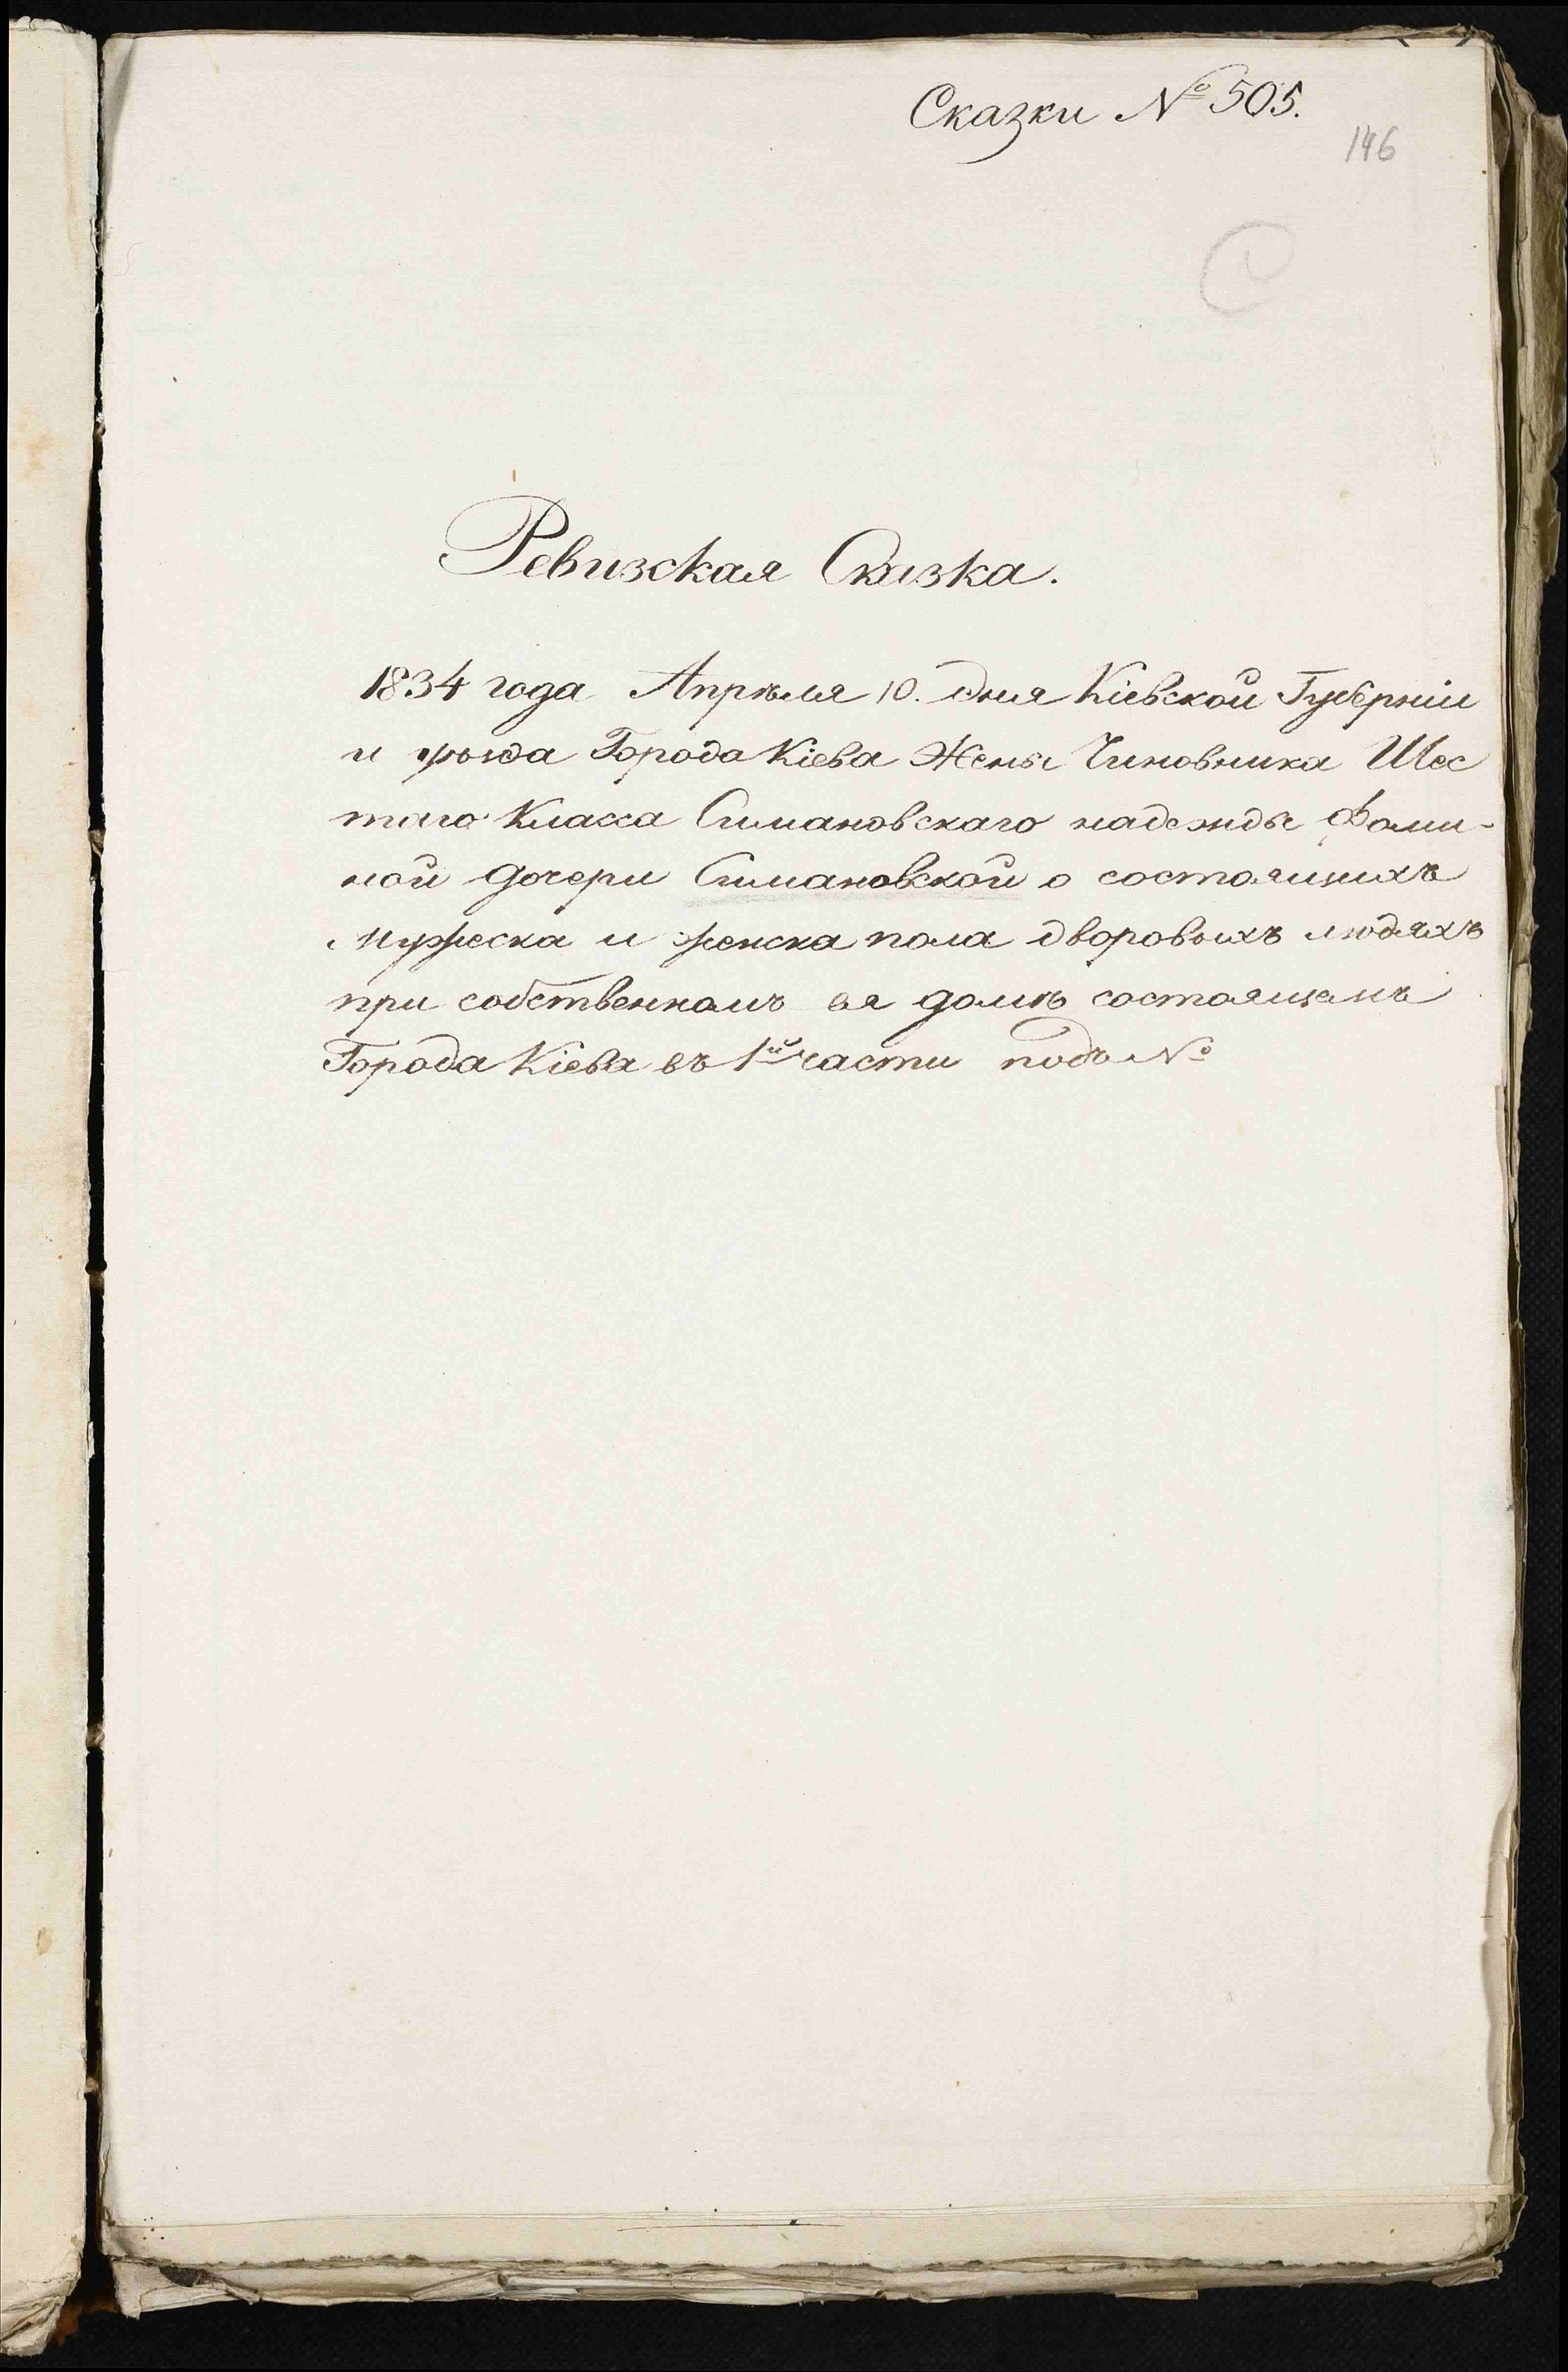 Сказки № 505.
146
Ревизская Сказка.
1834 года Апрѣля 10. дня Кіевской Губерніи
и уѣзда Города Кіева Жены Чиновника Шес
таго Класса Симановскаго надежды Фоми-
ной дочери Симановской о состоящихъ
мужеска и женска пола дворовыхъ людяхъ
при собственномъ ея домѣ состоящемъ
Города Кіева въ 1й части подъ №